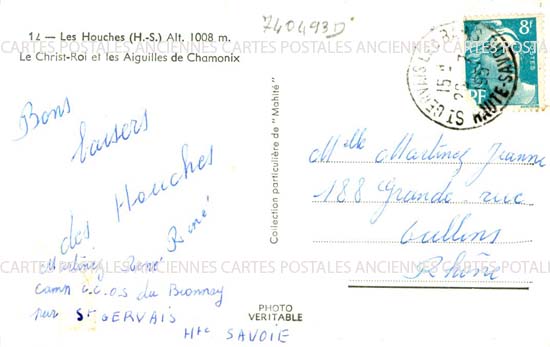 14 — Les Houches (H.-S.) Alt. 1008 m.
Le Christ-Roi et les Aiguilles de Chamonix
740493D
8F
POSTES
RF
ST GERVAIS-LES-BAINS
HAUTE-SAVOIE
15
Bons
baisers
des Houches
René
Martinez René
Camp C.C.O.S du Bionnay
par St GERVAIS
Hte SAVOIE
Collection particulière de "Mahité"
PHOTO
VERITABLE
Melle Martinez Jeanne
188 Grande rue
Oullins
Rhône
CARTES POSTALES ANCIENNES CARTES POSTALES ANCIENNES CARTES POSTALES
CARTES POSTALES ANCIENNES CARTES POSTALES ANCIENNES CARTES POSTALES